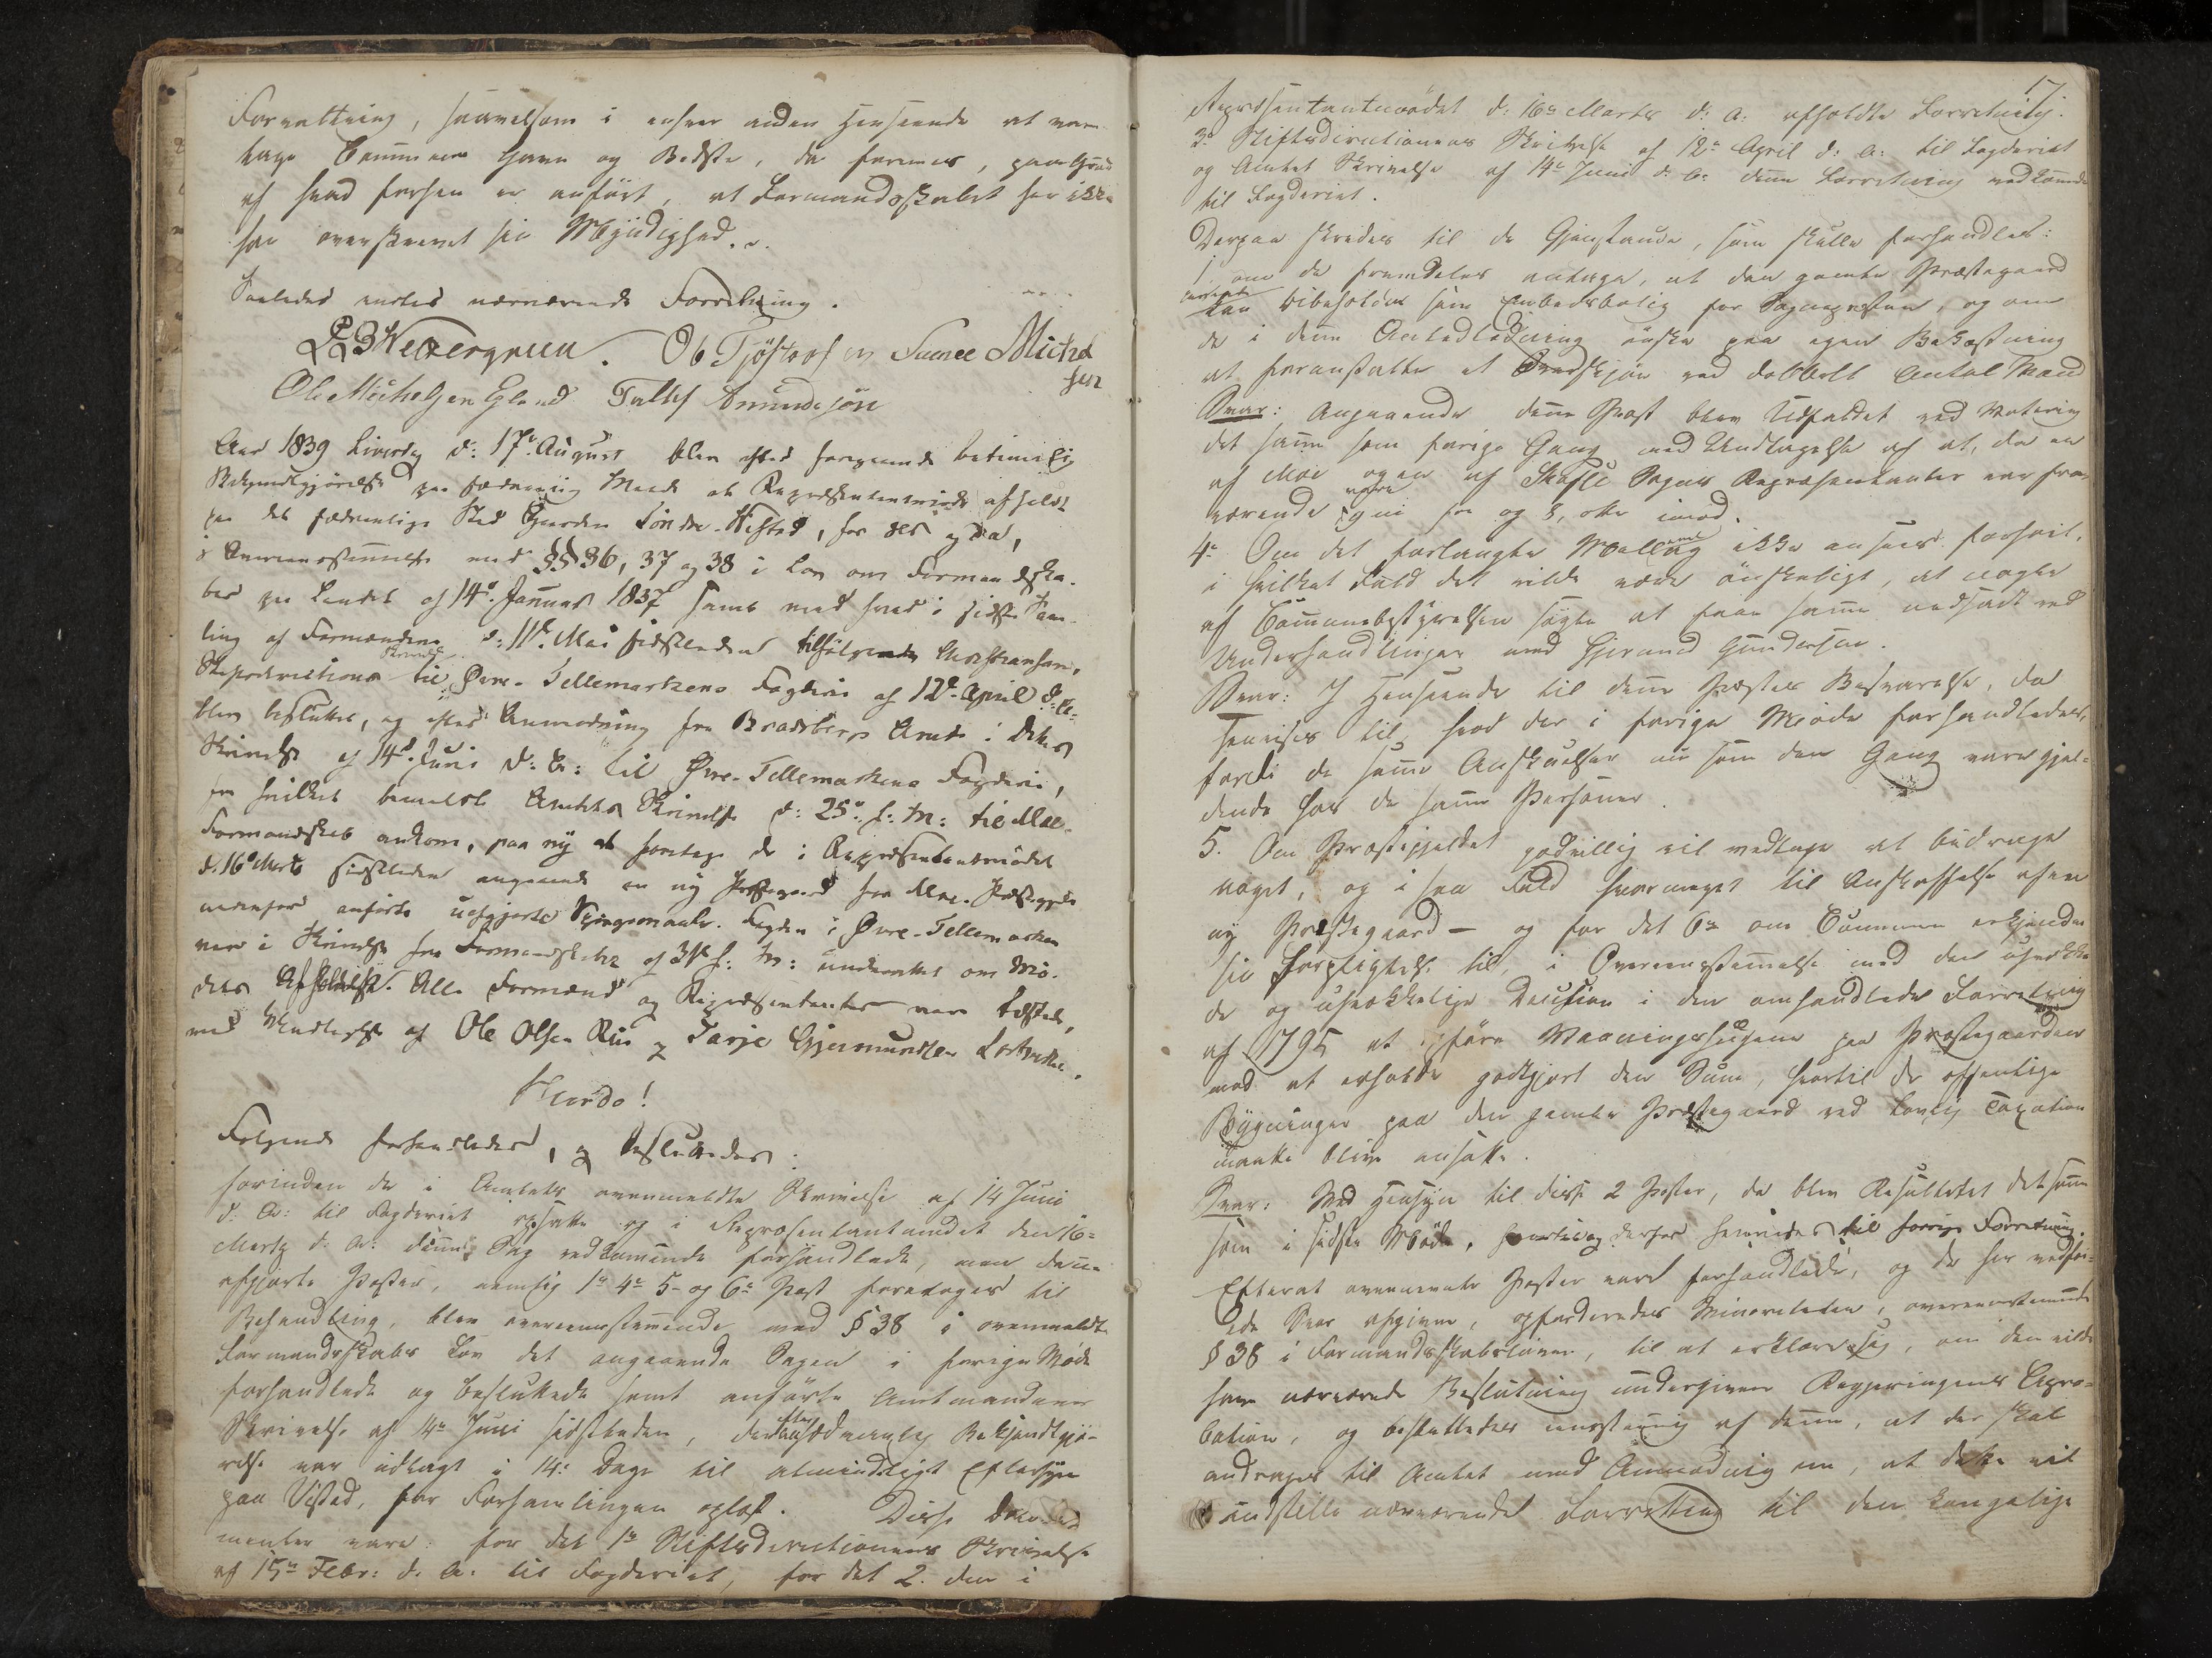 Forvaltning, saavelsom i enhver anden Henseende at vare-
tage Communens Gavn og Bedste, da formenes, paa Grund
af hvad forhen er anført, at Formandskabet her ikke
har overskrevet sin Myndighed.
Saaledes endtes nærværende Forretning.
Ole Michelsen Egland
Aar 1839 Løverdag d: 17de August blev efter foregaaende betimelig
Bekjendtgjørelse paa sædvanlig Maade et Repræsentantmøde afholdt
paa det sædvanlige Sted Gaarden Søndre-
i Overeensstemmelse med §§ 36, 37 og 38 i Lov om Formandska-
ber paa Landet af 14de Januar 1837 samt med hvad i sidste Sam-
ling af Formændene d: 11te Mai sidstleden
Skrivelse
til Øvre-Tellemarkens Fogderi af 12te April d: A:
blev besluttet, og efter Anmodning fra Bradsberg Amt i dettes
Skrivelse af 14de Juni d: A: til Øvre-Tellemarkens Fogderi,
fra hvilket bemeldte Amtets Skrivelse d: 25de f: M: til Moe-
Formandskab ankom, paa ny at foretage de i Repræsentantmødet
d. 16de Marts sidstleden angaaende en ny Præstegaard for Moe-Præstegjeld
nedenfor anførte uafgjorte Spørgsmaale. Fogden i Øvre-Tellemarken
var i Skrivelse fra Formandskabet af 31te f: M: underrettet om Mø-
dets Afholdelse. Alle Formænd og Repræsentanter vare tilstede,
med Undtagelse af Ole Olsen og Tarje Gjermundsen
Følgende forhandledes, og besluttedes:
Forinden de i Amtets ovenmeldte Skrivelse af 14 Juni
d: A: til Fogderiet opsatte og i Repræsentantmødet den 16de
Marts d: A: denne Sag vedkommende forhandlede, men
afgjorte Poster, nemlig 1ste 4de 5te og 6te Post foretoges til
Behandling, blev overeensstemmende med § 38 i ovenmeldte
Formandskabs Lov det angaaende Sagen i forrige Møde
forhandlede og besluttede samt anførte Amtmandens
Skrivelse af 14de Juni sidstleden, der efter sædvanlig Bekjendtgjø-
relse var udlagt i 14 Dage til almindeligt Eftersyn
paa Vistad, for Forsamlingen oplæst. Disse Docu-
menter vare: for det 1ste Stiftsdirectionens Skrivelse
af 15de Febr: d: A: til Fogderiet, for det 2. den i
17
Repræsentantmødet d: 16de Marts d: A: afholdte Forretning.
3de Stiftsdirectionens Skrivelse af 12te April d: A: til Fogderiet
og Amtet Skrivelse af 14de Juni d: A: denne Forretning vedkommende
til Fogderiet.
Derpaa skredes til de Gjenstande, som skulle forhandles:
1 om de fremdeles antage, at den gamle Præstegaard
kan bibeholdes som Embedsbolig for Sognepræsten, og om
de i denne Anledning ønske paa egen Bekostning
at foranstalte et Overskjøn ved dobbelt Antal Mænd
Svar: Angaaende denne Post blev Udfaldet ved Votering
det samme som forrige Gang med Undtagelse af at, da en
af Moe og en af Skafse Sogns Repræsentanter var fra-
værende vare ni for og 8, otte imod.
4de Om det forlangte Mellemlag ikke ansees for høit,
i hvilket Fald det vilde være ønskeligt, at nogle
af Communebestyrelsen søgte at faae samme nedsadt ved
Underhandlinger med Gjermund Gundersen.
Svar: I Henseende til denne Postes Besvarelse, da
henvises til, hvad der i forrige Møde forhandledes,
fordi de samme Anskuelser nu som den Gang vare gjæl-
dende hos de samme Personer.
5. Om Præstegjeldet godvillig vil vedtage at bidrage
noget, og i saa Fald hvormeget til Anskaffelse af en
ny Præstegaard — og for det 6te om Communen erkjender
sin Forpligtelse til, i Overeensstemmelse med den
Decision i den omhandlede Forretning
af 1795 at opføre Vaaningshusene paa Præstegaarden
mod at erholde godtgjort den Sum, hvortil de offentlige
Bygninger paa den gamle Præstegaard ved lovlig Taxation
maatte blive ansatte.
Svar: Med Hensyn til disse 2 Poster, da blev Resultatet det samme
som i sidste Møde, derfor henvises til forrige Forretning.
Efterat ovennævnte Poster vare forhandlede, og de her vedføi-
ede Svar afgivne, opfordredes Minoriteten, overeensstemmende
§ 38 i Formandskabsloven, til at erklære sig, om den vilde
have nærværende Beslutning undergiven Regjeringens Appro-
bation, og besluttedes eenstemmig af denne, at der skal
andrages til Amtet med Anmodning om, at dette vil
indstille nærværende Forretning til den kongelige